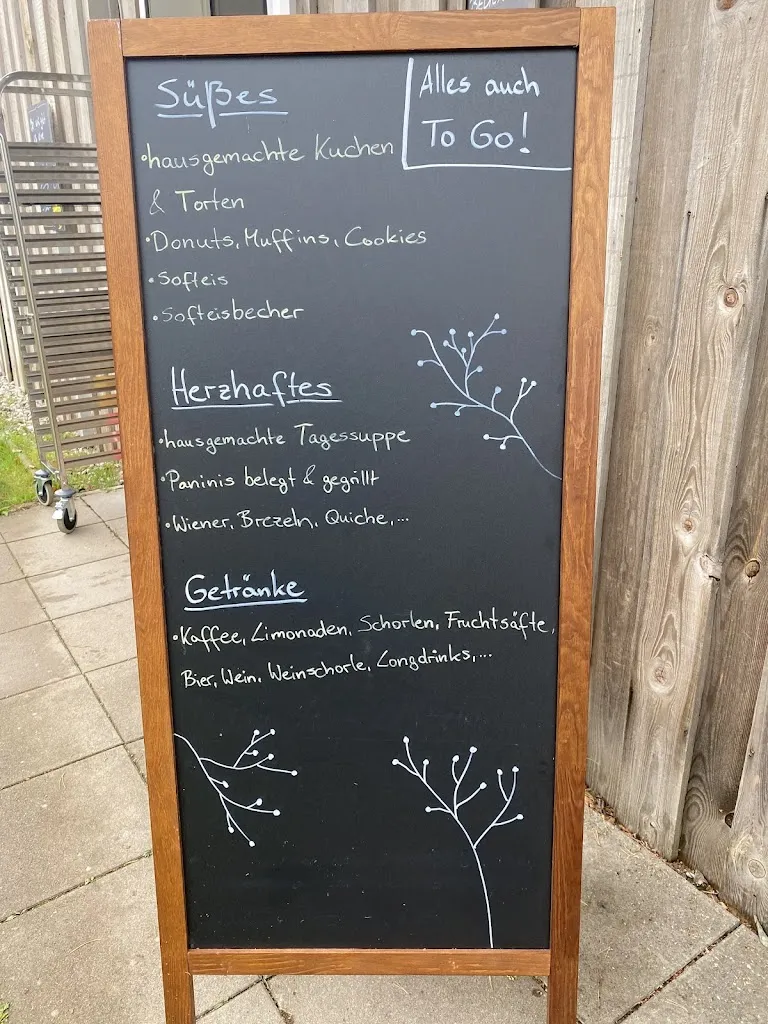 Süßes
Alles auch
To Go!
• hausgemachte Kuchen
& Torten
• Donuts, Muffins, Cookies
• Softeis
• Softeisbecher
Herzhaftes
• hausgemachte Tagessuppe
• Paninis belegt & gegrillt
• Wiener, Brezeln, Quiche,...
Getränke
• Kaffee, Limonaden, Schorlen, Fruchtsäfte,
Bier, Wein, Weinschorle, Longdrinks,...